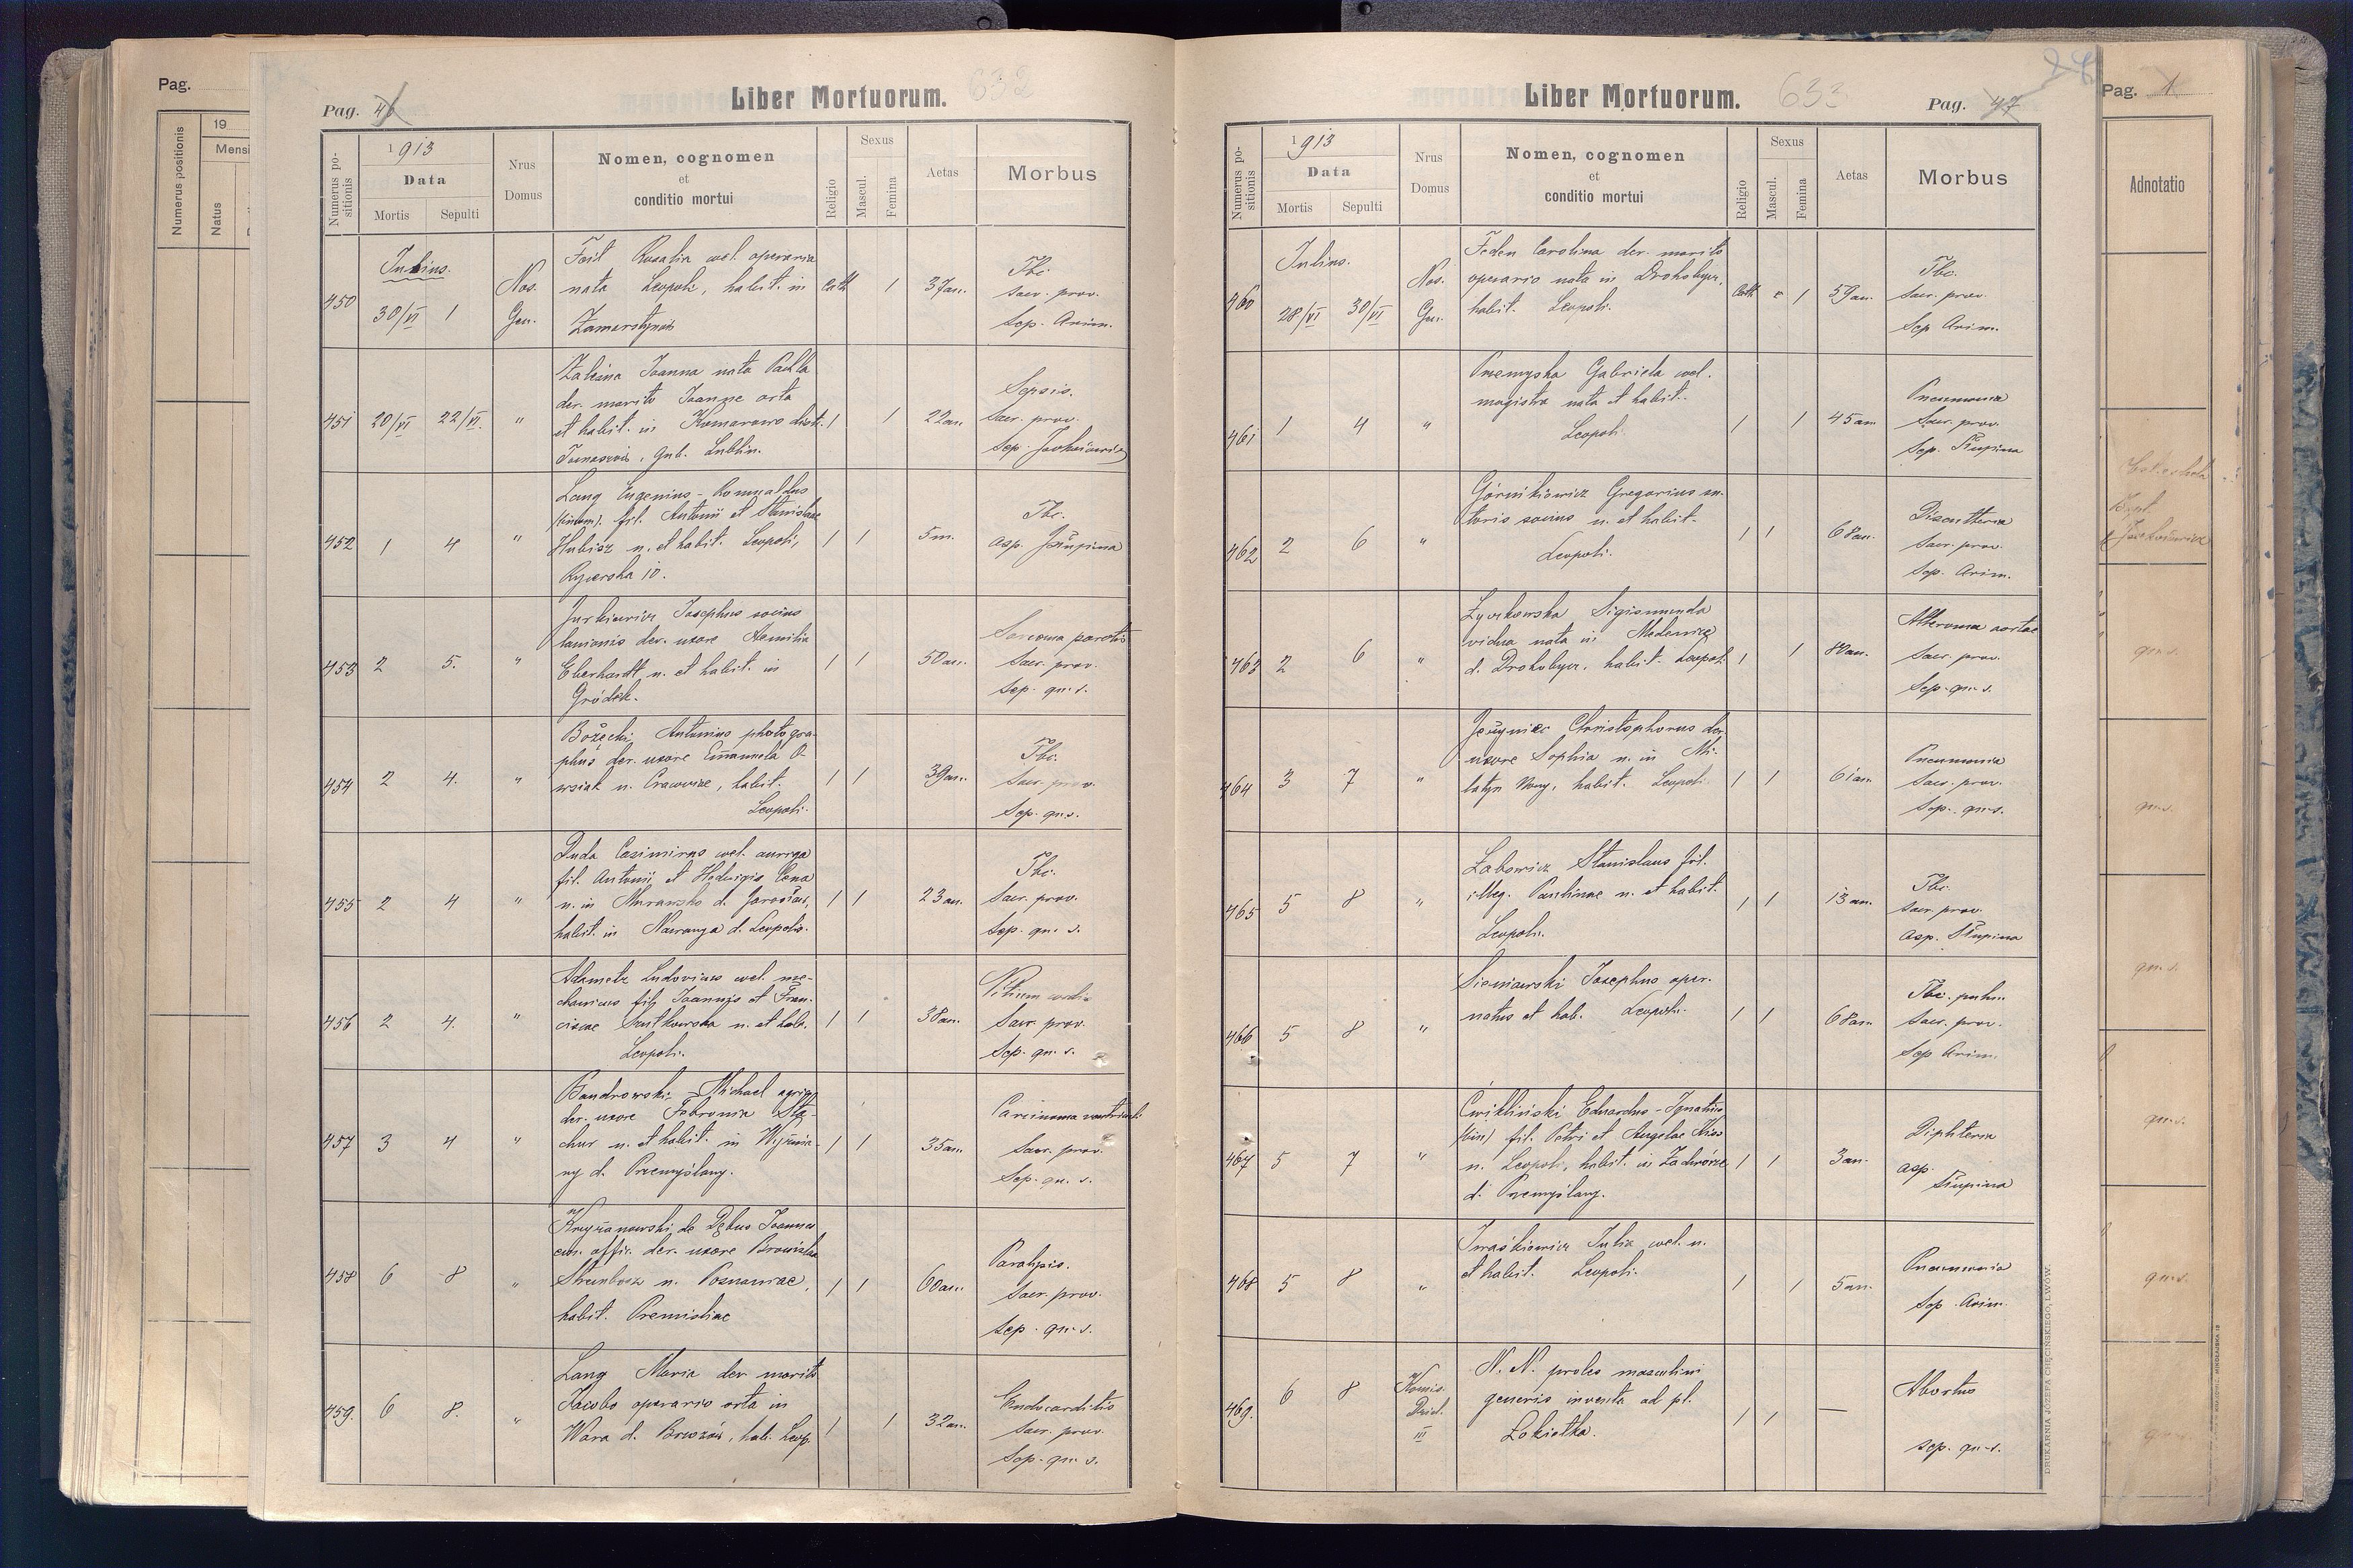 Pag.
19
Mensi
Numerus positionis
Natus
Pag. 46
Liber Mortuorum. 632
Numerus positionis
1913
Data
Mortis Sepulti
Nrus Domus
Nomen, cognomen
et
conditio mortui
Religio
Sexus
Mascul.
Femina
Aetas
Morbus
Julius.
450
30/VI 1
Nos. Gen.
Foit Rosalia coel. operaria
nata Leopoli, habit. in
Zamarstynów
cath 1 37 an.
Tbc.
Sacr. prov.
Sep. Arim.
451
20/VI 22/VI.
"
Joanna nata
der. marito Joanne orta
et habit. in Komarowo distr.
Gub. Lublin.
1 1 22 an.
Sepsis.
Sacr. prov.
Sep.
452
1 4
"
Lang Eugenius - Romualdus
(binom). fil. Antonii et Stanislae
Hubisz n. et habit. Leopoli,
Rycerska 10.
1 1 5 m.
Tbc.
asp. Słupina
453
2 5.
"
Jurkiewicz Josephus socius
lanionis der. uxore Aemilia
Eberhardt n. et habit. in
Gródek.
1 1 50 an.
Sarcoma parotis
Sacr. prov.
Sep. qu. s.
454
2 4.
"
Bożęcki Antonius photogra-
phus der. uxore Emanuela O-
wsiak n. Cracoviae, habit.
Leopoli.
1 1 39 an.
Tbc.
Sacr. prov.
Sep. qu. s.
455
2 4
"
Duda Casimirus coel. auriga
fil. Antonii et Hedvigis Cena
n. in d. Jaroslau,
habit. in Nawarya d. Leopolis.
1 1 23 an.
Tbc.
Sacr. prov.
Sep. qu. s.
456
2 4.
"
Adametz Ludovicus coel. me-
chanicus fil. Joannis et Fran-
ciscae n. et hab.
Leopoli.
1 1 38 an.
Vitium cordis
Sacr. prov.
Sep. qu. s.
457
3 4
"
Bandrowski Michael agric.
der. uxore Febronia Sta-
chur n. et habit. in Wyżnia-
ny d. Przemyślany.
1 1 35 an.
Carcinoma ventriculi
Sacr. prov.
Sep. qu. s.
458
6 8
"
Krzyżanowski de Dębno Joannes
em. offic. der. uxore Bronislaa
n. Posnaniae,
habit. Premisliae
1 1 60 an.
Paralysis.
Sacr. prov.
Sep. qu. s.
459.
6 8.
"
Lang Maria der marito
Jacobo operario orta in
Wara d. Brzozów, hab. Leop.
1 1 32 an.
Endocarditis
Sacr. prov.
Sep. qu. s.
Liber Mortuorum. 633
Pag. 47
Numerus positionis
1913
Data
Mortis Sepulti
Nrus Domus
Nomen, cognomen
et
conditio mortui
Religio
Sexus
Mascul.
Femina
Aetas
Morbus
Julius.
460
28/VI 30/VI
Nos. Gen.
Feden Carolina der. marito
operario nata in Drohobycz,
habit. Leopoli.
Cath 1 59 an.
Tbc.
Sacr. prov.
Sep Arim.
461
1 4
"
Przemyska Gabriela coel.
magistra nata et habit.
Leopoli.
1 1 45 an
Pneumonia
Sacr. prov.
Sep. Słupina
462
2 6
"
Górnikiewicz Gregorius su-
toris socius n. et habit.
Leopoli.
1 1 68 an.
Sacr. prov.
Sep. Arim.
463
2 6
"
Życzkowska Sigismunda
vidua nata in Medenice
d. Drohobycz. habit. Leopoli.
1 1 80 an.
Atheroma aortae
Sacr. prov.
Sep. qu. s.
464
3 7
"
Christophorus der.
uxore Sophia n. in Mi-
latyn Nowy, habit. Leopoli.
1 1 61 an.
Pneumonia
Sacr. prov.
Sep. qu. s.
465
5 8
"
Łabowicz Stanislaus fil.
illeg. Paulinae n. et habit.
Leopoli.
1 1 13 an.
Tbc.
Sacr. prov.
asp. Słupina
466
5 8
"
Sieniawski Josephus oper.
natus et hab. Leopoli.
1 1 68 an.
Tbc. pulm.
Sacr. prov.
Sep Arim.
467
5 7
"
Ćwikliński Eduardus-Ignatius
(bin) fil. Petri et Angelae
n. Leopoli, habit. in Zadwórze
d. Przemyślany.
1 1 3 an.
Diphteria
asp.
Słupina
468
5 8
"
Iwaśkiewicz Julia coel. n.
et habit. Leopoli.
1 1 5 an.
Pneumonia
Sep. Arim.
469.
6 8
Komis. Dziel. III
N. N. proles masculini
generis inventa ad pl.
Łokietka.
1 1 —
Abortus
sep. qu. s.
DRUKARNIA JÓZEFA CHĘCIŃSKIEGO, LWÓW.
Pag. 1
Adnotatio
qu. s.
qu. s.
qu. s.
qu. s.
qu. s.